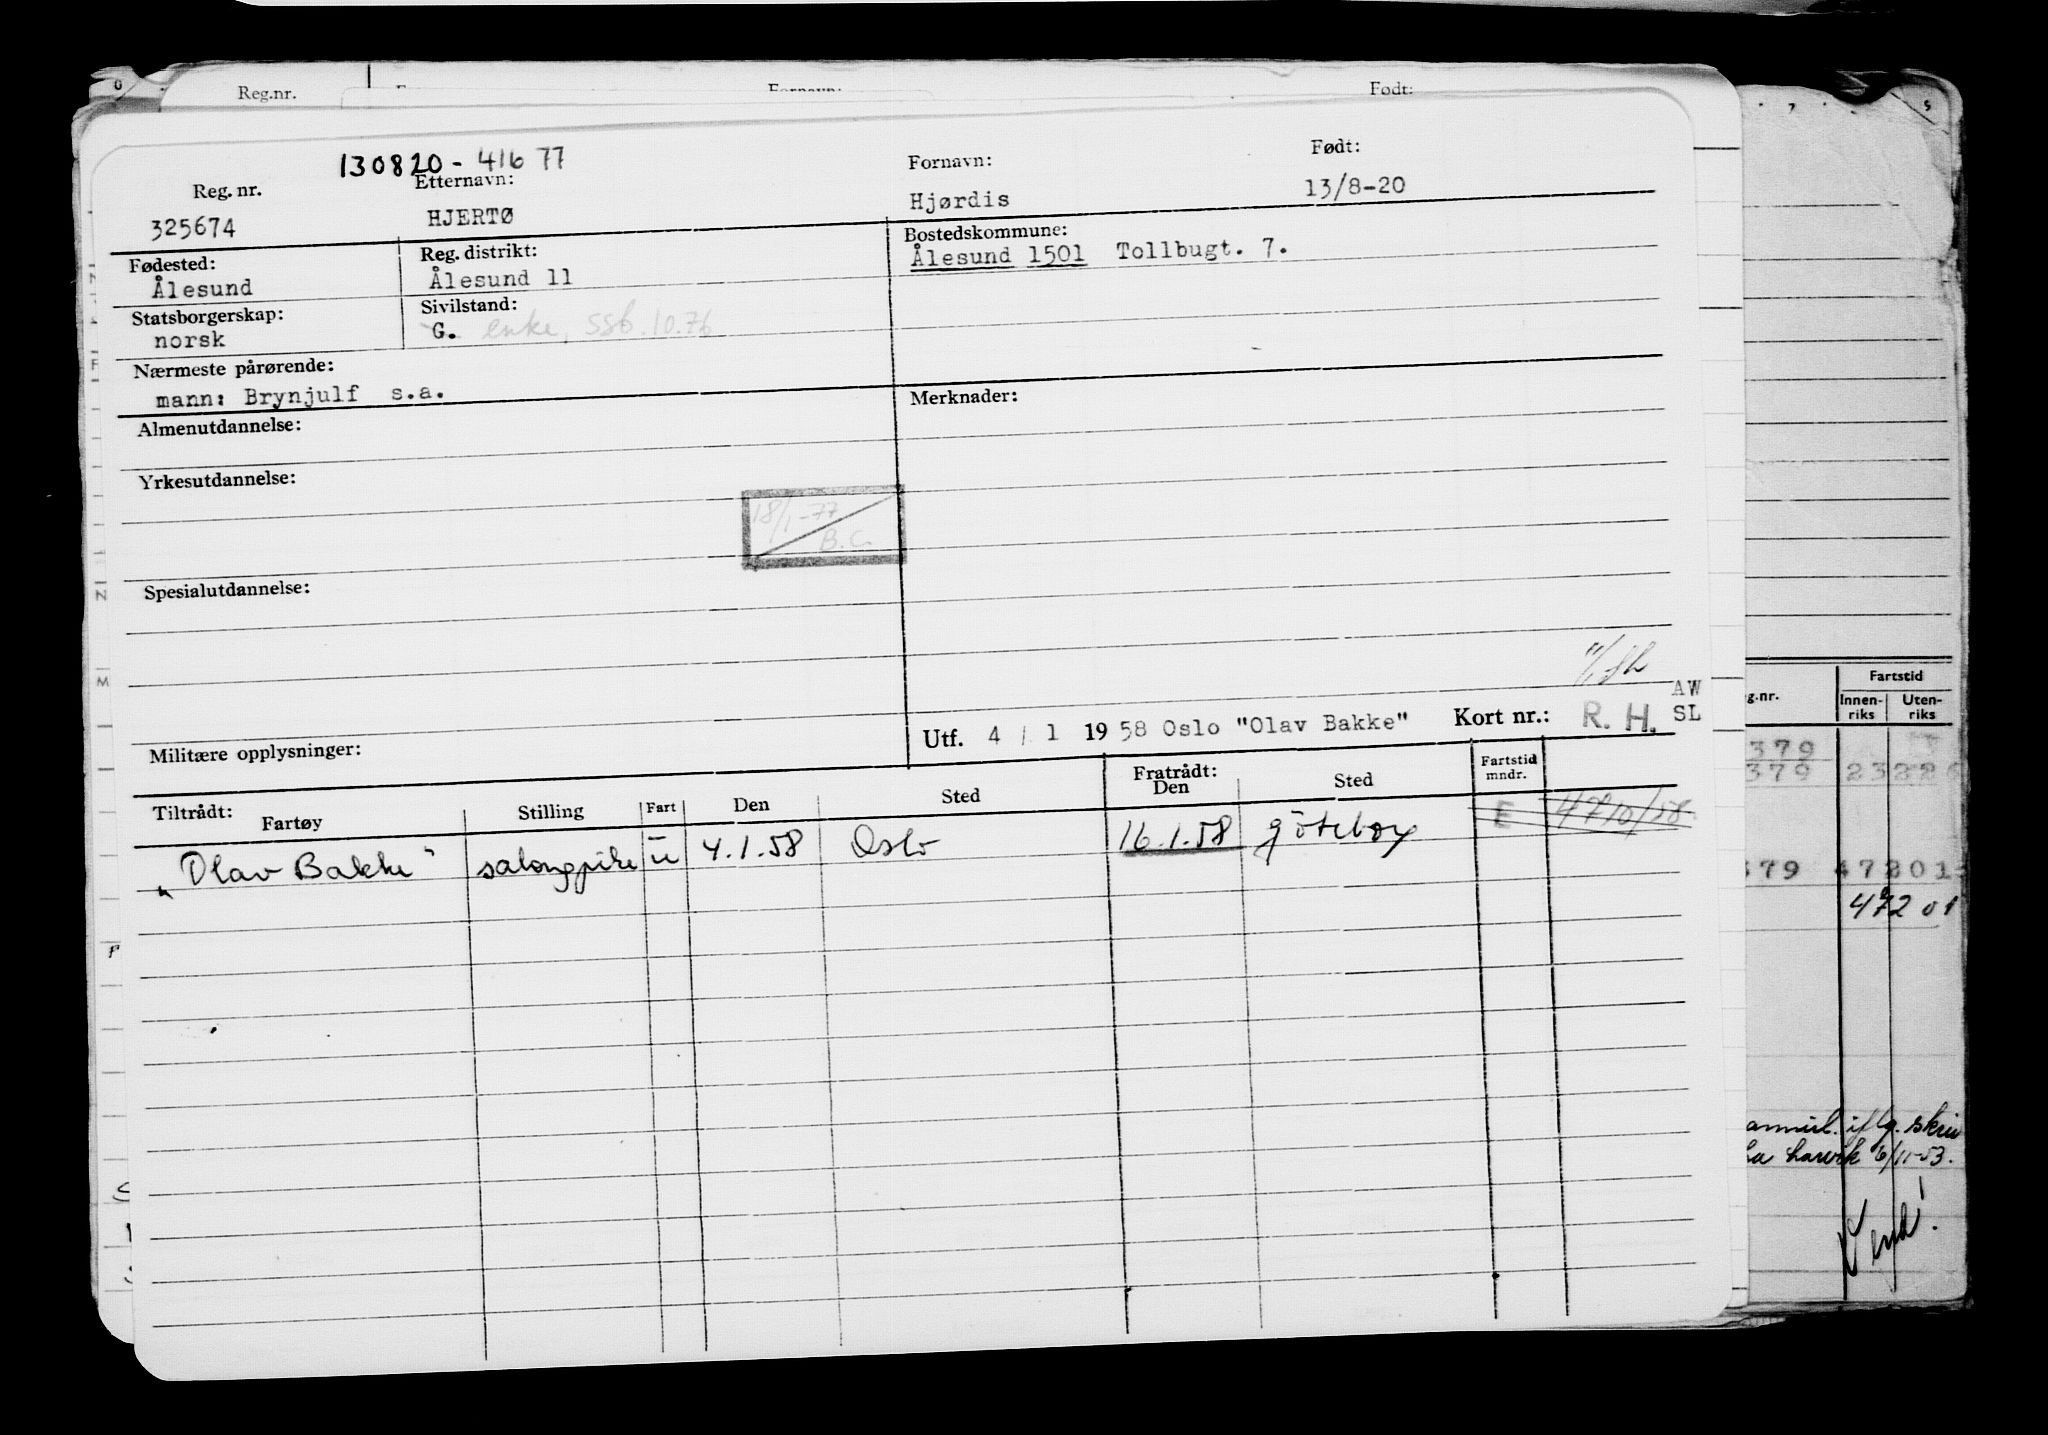 Reg.nr. Fornavn: Født:
130820 - 41677
Reg. nr. Etternavn: Fornavn: Født:
325674 HJERTØ Hjørdis 13/8-20
Fødested: Reg. distrikt: Bostedskommune:
Ålesund Ålesund 11 Ålesund 1501 Tollbugt. 7.
Statsborgerskap: Sivilstand:
norsk G. enke, ssb. 10.76
Nærmeste pårørende:
mann: Brynjulf s.a.
Almenutdannelse: Merknader:
Yrkesutdannelse:
18/1-77
B.C.
Spesialutdannelse:
AW
Utf. 4 / 1 1958 Oslo "Olav Bakke" Kort nr.: R. H. SL
Militære opplysninger:
Tiltrådt: Fartøy Stilling Fart Den Sted Fratrådt: Den Sted Fartstid mndr.
"Olav Bakke" salongpike u 4.1.58 Oslo 16.1.58 Göteborg E
g.nr. Fartstid
Innen-riks Uten-riks
379
379
379
472 01
annul. iflg. skriv
6/11-53.
Vend!